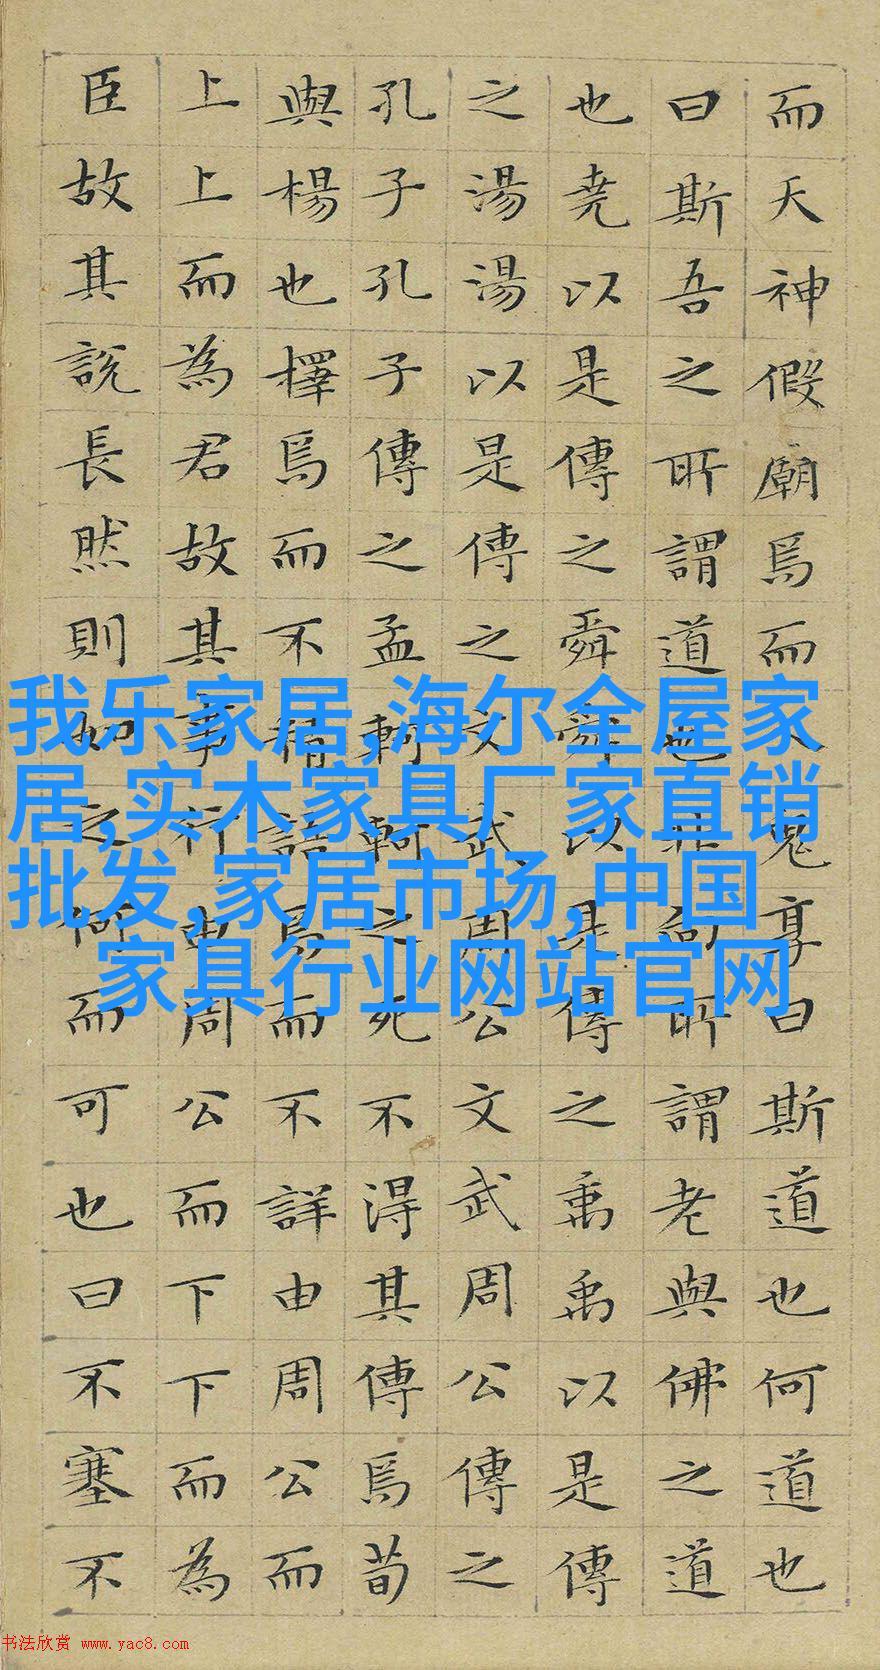 而天神假廟焉而人鬼享曰斯道也何道也
曰斯吾之所謂道也非向所謂老與佛之道
也堯以是傳之舜舜以是傳之禹禹以是傳
之湯湯以是傳之文武周公文武周公傳之
孔子孔子傳之孟軻軻之死不得其傳焉荀
與楊也擇焉而不精語焉而不詳由周公而
上上而為君故其事行由周公而下下而為
臣故其說長然則如之何而可也曰不塞不
我乐家居,海尔全屋家
居,实木家具厂家直销
批发,家居市场,中国
家具行业网站官网
书法欣赏 www.yac8.com